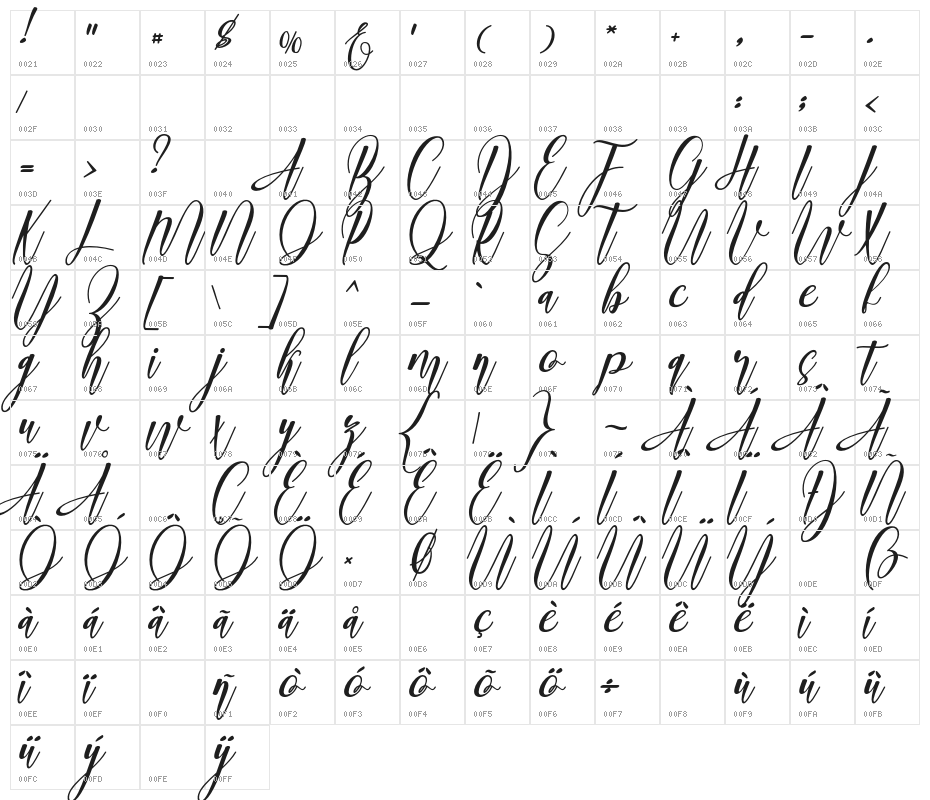 ! " # $ % & ' ( ) * + , - .
0021 0022 0023 0024 0025 0026 0027 0028 0029 002A 002B 002C 002D 002E
/ : ; <
002F 0030 0031 0032 0033 0034 0035 0036 0037 0038 0039 003A 003B 003C
= > ? A B C D E F G H I J
003D 003E 003F 0040 0041 0042 0043 0044 0045 0046 0047 0048 0049 004A
K L M N O P Q R S T U V W X
004B 004C 004D 004E 004F 0050 0051 0052 0053 0054 0055 0056 0057 0058
Y Z [ \ ] ^ _ ` a b c d e f
0059 005A 005B 005C 005D 005E 005F 0060 0061 0062 0063 0064 0065 0066
g h i j k l m n o p q r s t
0067 0068 0069 006A 006B 006C 006D 006E 006F 0070 0071 0072 0073 0074
u v w x y z { | } ~ À Á Â Ã
0075 0076 0077 0078 0079 007A 007B 007C 007D 007E 00C0 00C1 00C2 00C3
Ä Å Ç È É Ê Ë Ì Í Î Ï Ð Ñ
00C4 00C5 00C6 00C7 00C8 00C9 00CA 00CB 00CC 00CD 00CE 00CF 00D0 00D1
Ò Ó Ô Õ Ö × Ø Ù Ú Û Ü Ý ß
00D2 00D3 00D4 00D5 00D6 00D7 00D8 00D9 00DA 00DB 00DC 00DD 00DE 00DF
à á â ã ä å ç è é ê ë ì í
00E0 00E1 00E2 00E3 00E4 00E5 00E6 00E7 00E8 00E9 00EA 00EB 00EC 00ED
î ï ñ ò ó ô õ ö ÷ ù ú û
00EE 00EF 00F0 00F1 00F2 00F3 00F4 00F5 00F6 00F7 00F8 00F9 00FA 00FB
ü ý ÿ
00FC 00FD 00FE 00FF